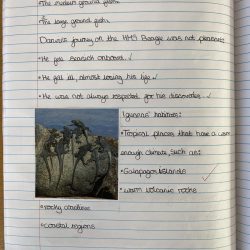 •The medium ground finch.
•The large ground finch.
Darwin's journey on the HMS Beagle was not pleasant:
•He got seasick onboard.
•He fell ill, almost losing his life.
•He was not always respected for his discoveries.
Iguanas' habitats:
•Tropical places that have a warm
enough climate, such as:
•Galapagos Islands
•warm volcanic rocks
•rocky coastlines
•coastal regions